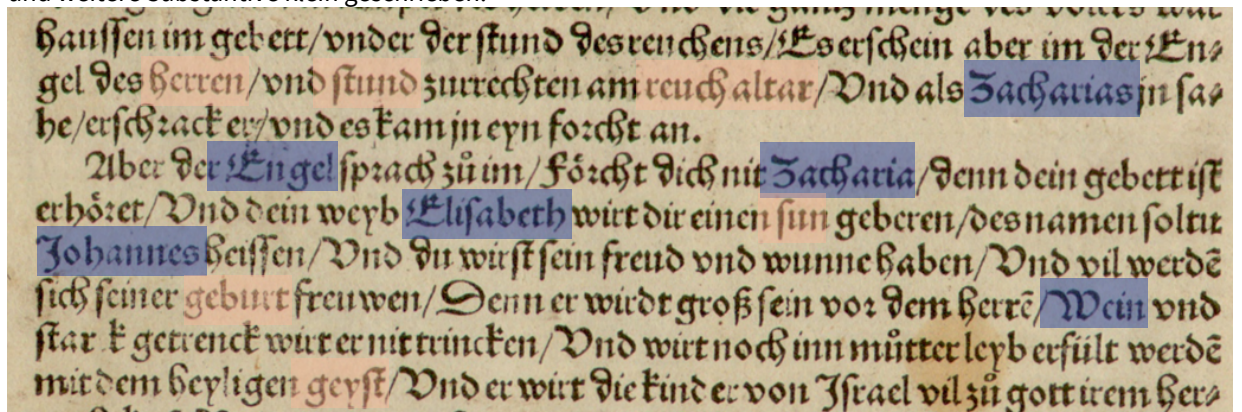 und weitere Substantive klein geschrieben.
haussen im gebett/vnder der stund des reuchens/Es erschein aber im der En⸗
gel des herren/vnd stund zur rechten am reuch altar/Vnd als Zacharias jn sa⸗
he/erschrack er/vnd es kam jn eyn forcht an.
Aber der Engel sprach zuͦ im/Foͤrcht dich nit Zacharia/denn dein gebett ist
erhoͤret/Vnd dein weyb Elisabeth wirt dir einen sun geberen/des namen soltu
Johannes heissen/Vnd du wirst sein freud vnd wunne haben/Vnd vil werdẽ
sich seiner geburt freuwen/Denn er wirdt groß sein vor dem herrẽ/Wein vnd
starck getrenck wirt er nit trincken/Vnd wirt noch inn muͤtter leyb erfült werdẽ
mit dem heyligen geyst/Vnd er wirt die kinder von Israel vil zuͦ gott irem her⸗